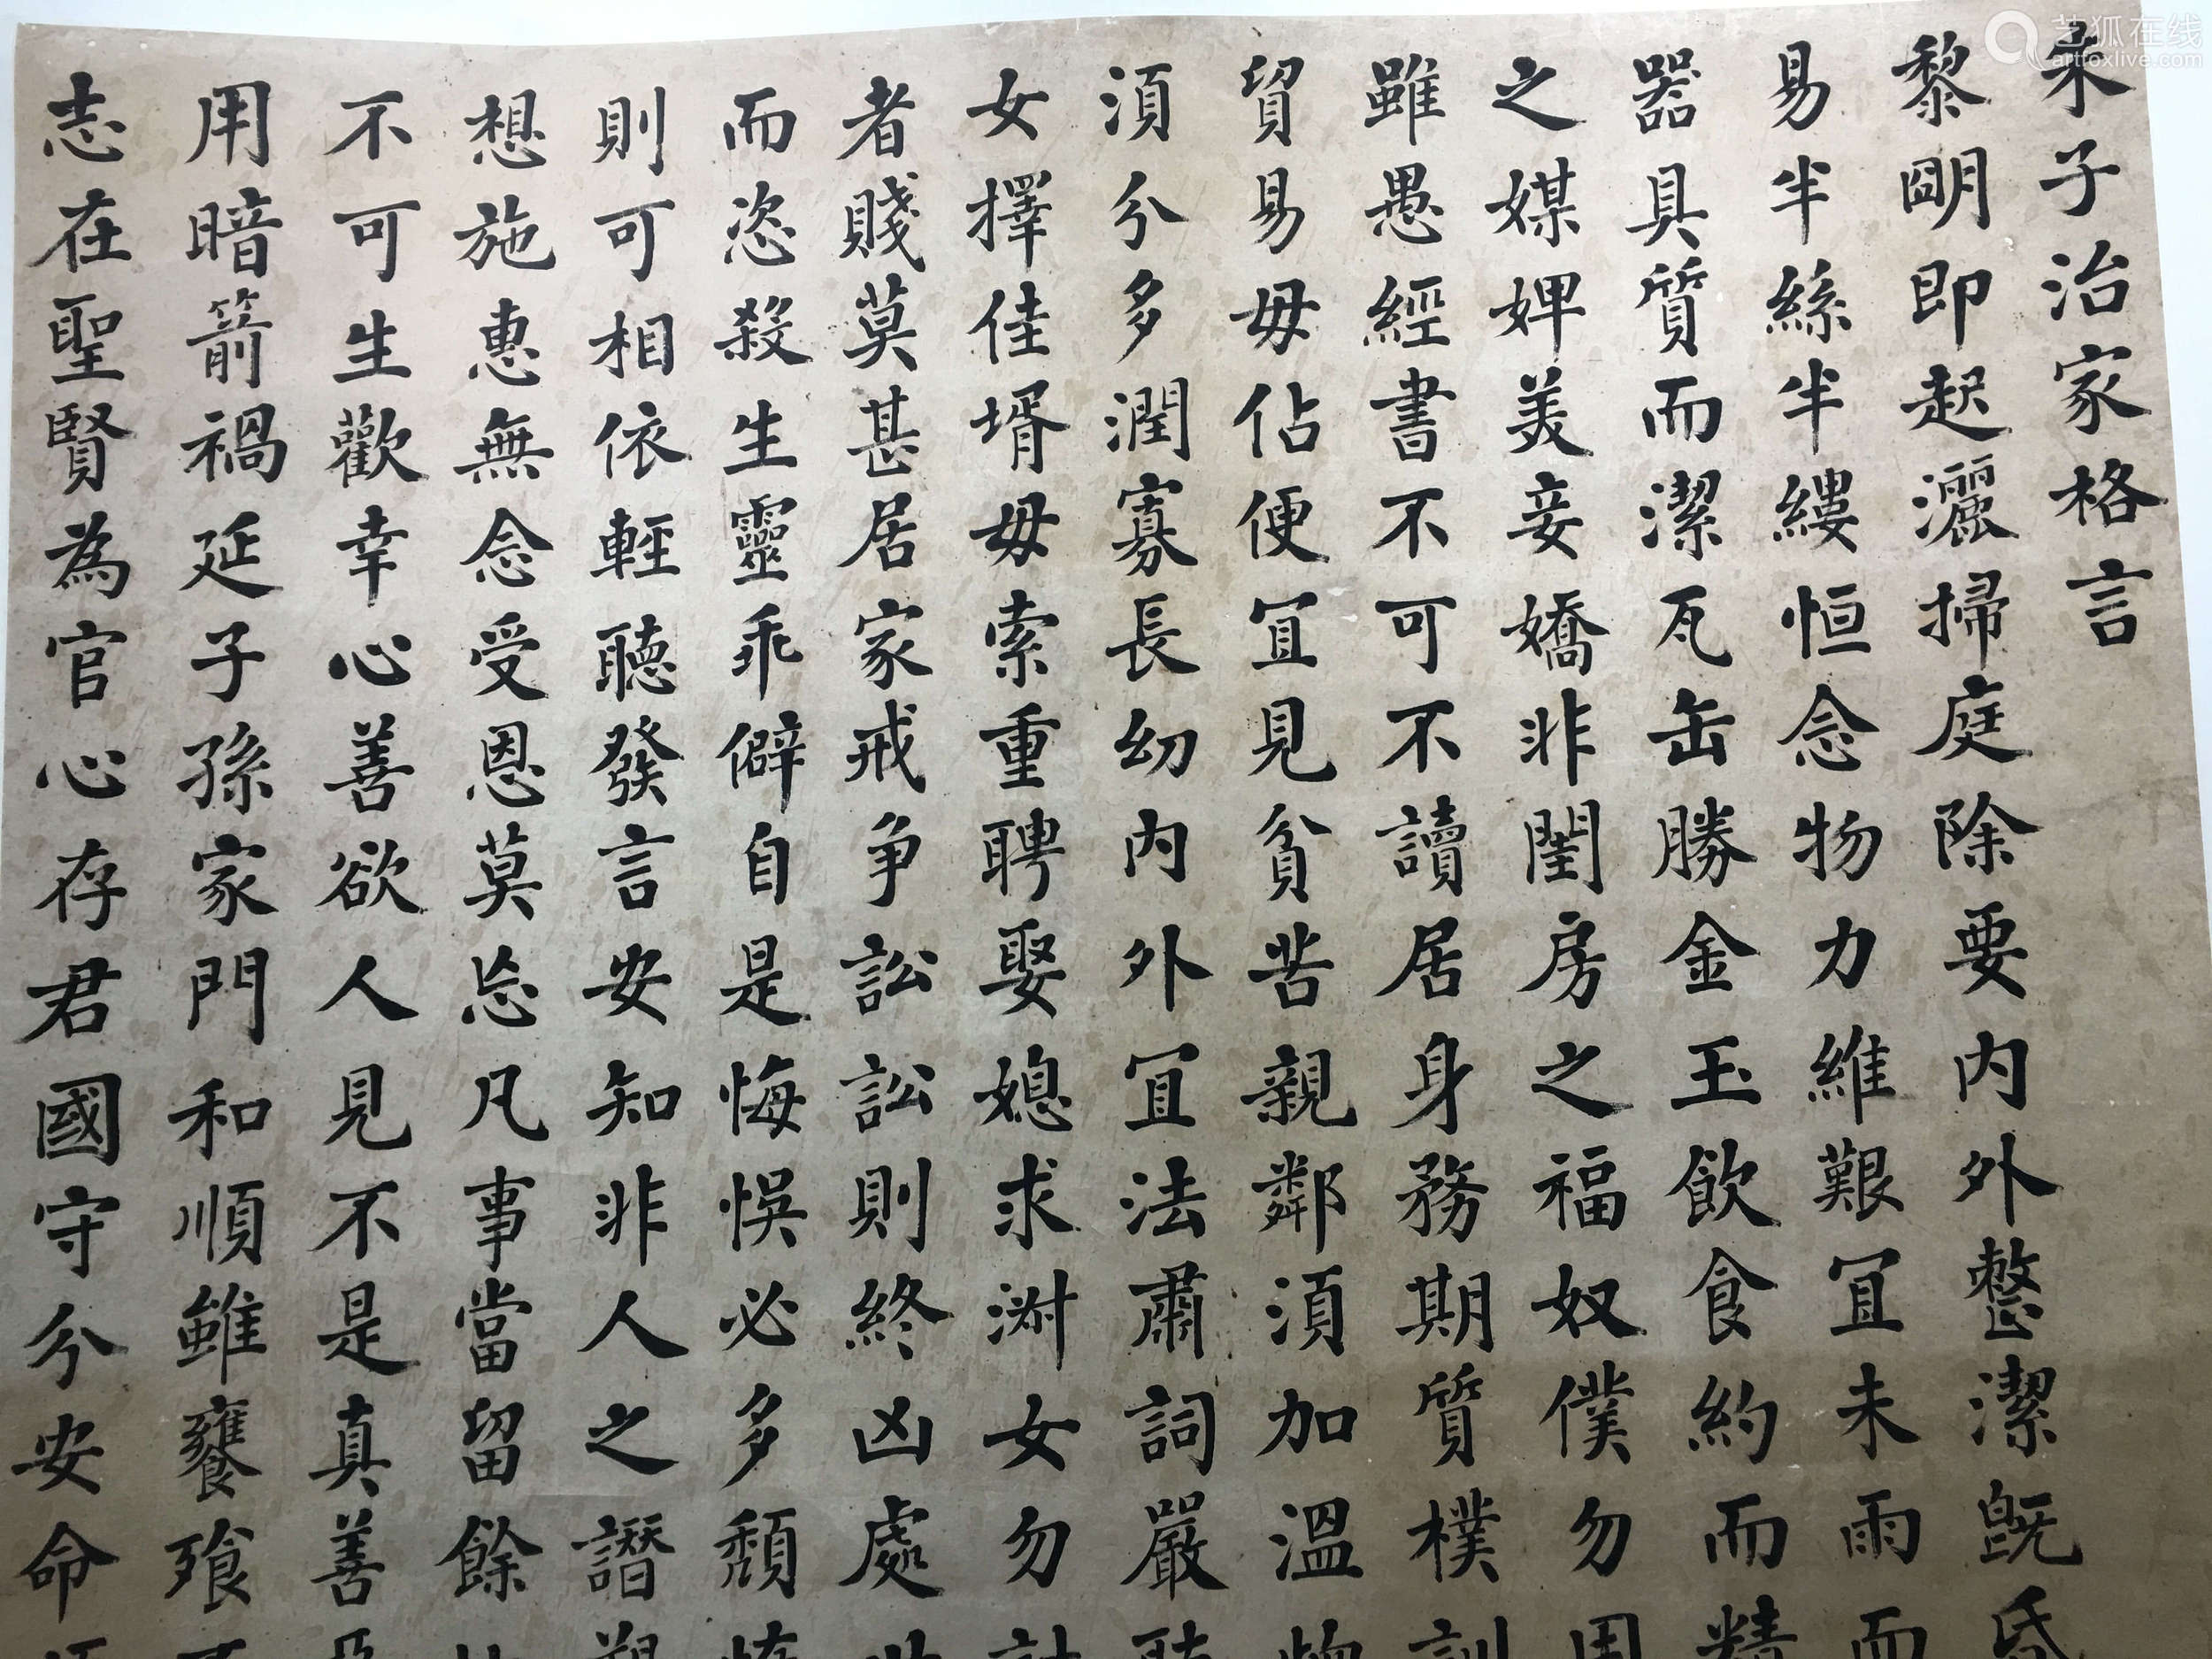 朱子治家格言
黎明即起灑掃庭除要内外整潔既昏
易半絲半縷恒念物力維艱宜未雨而
器具質而潔瓦缶勝金玉飲食約而精
之媒婢美妾嬌非閨房之福奴僕勿用
雖愚經書不可不讀居身務期質樸訓
貿易毋佔便宜見貧苦親鄰須加溫恤
須分多潤寡長幼内外宜法肅詞嚴聽
女擇佳壻毋索重聘娶媳求淑女勿計
者賤莫甚居家戒争訟訟則終凶處世
而恣殺生靈乖僻自是悔悮必多頹惰
則可相依輕聽發言安知非人之譖
想施惠無念受恩莫忘凡事當留餘
不可生歡幸心善欲人見不是真善
用暗箭禍延子孫家門和順雖饔飧
志在聖賢為官心存君國守分安命
艺狐在线
artfoxlive.com